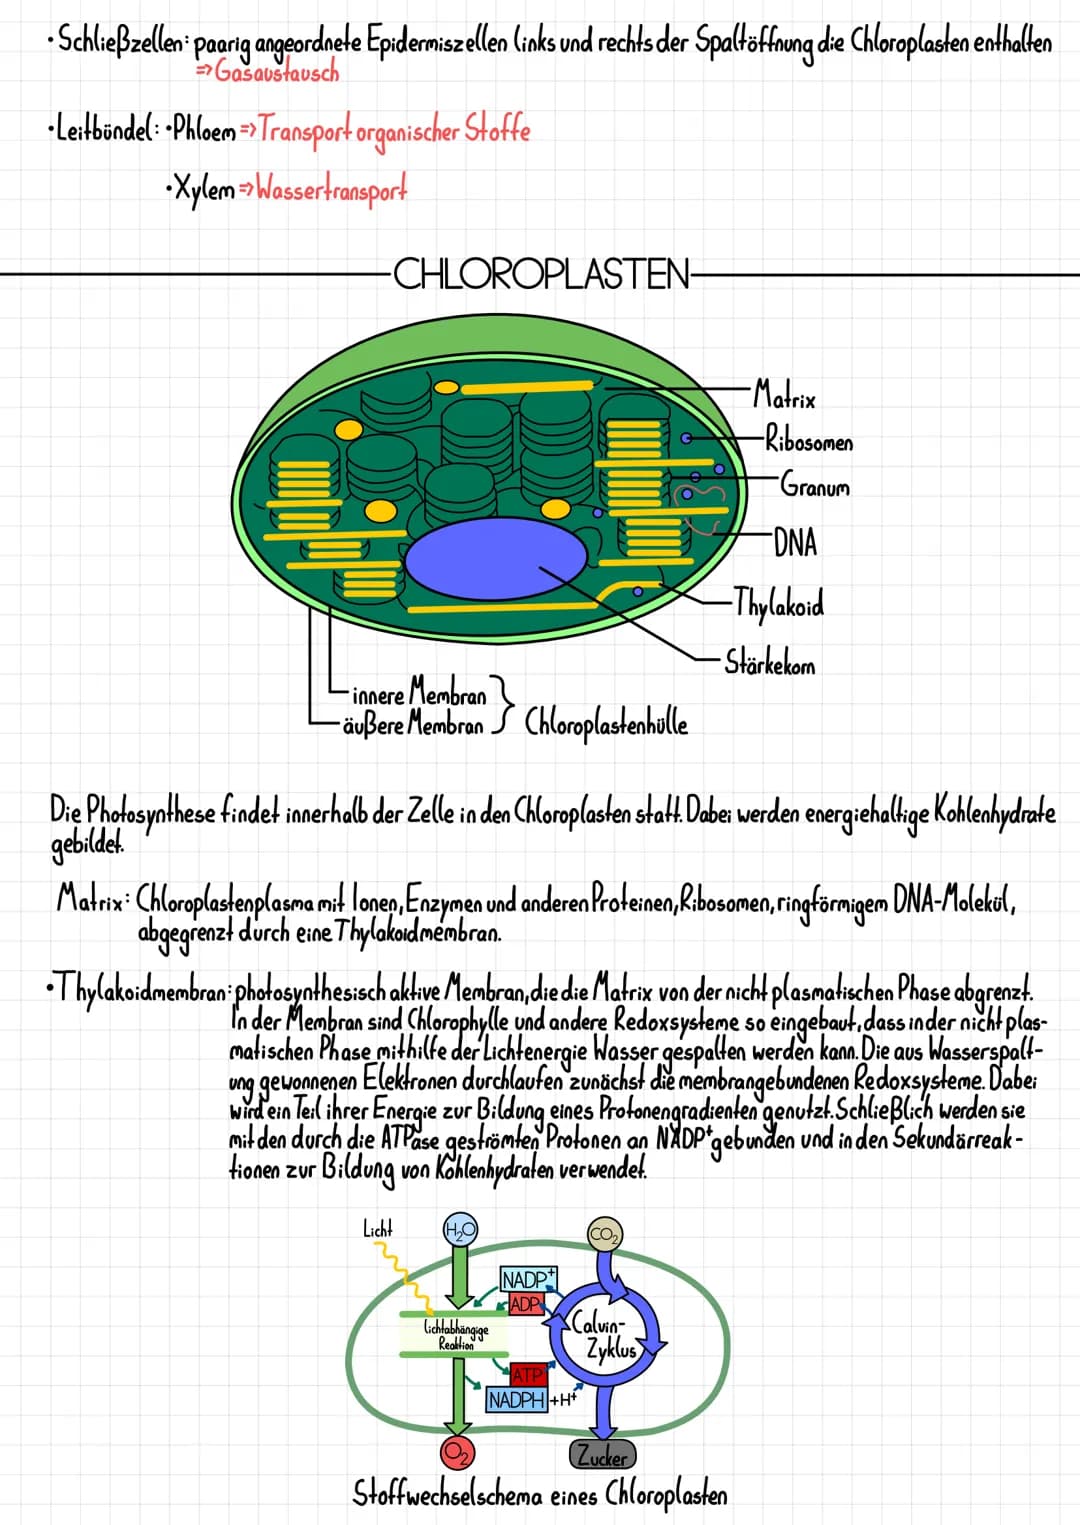 •Schließzellen: paarig angeordnete Epidermiszellen links und rechts der Spaltöffnung die Chloroplasten enthalten
=>Gasaustausch
•Leitbündel: •Phloem=>Transport organischer Stoffe
•Xylem=>Wassertransport
CHLOROPLASTEN
Matrix
Ribosomen
Granum
DNA
Thylakoid
Stärkekorn
innere Membran
äußere Membran } Chloroplastenhülle
Die Photosynthese findet innerhalb der Zelle in den Chloroplasten statt. Dabei werden energiehaltige Kohlenhydrate
gebildet.
Matrix: Chloroplastenplasma mit Ionen, Enzymen und anderen Proteinen, Ribosomen, ringförmigem DNA-Molekül,
abgegrenzt durch eine Thylakoidmembran.
•Thylakoidmembran: photosynthesisch aktive Membran, die die Matrix von der nicht plasmatischen Phase abgrenzt.
In der Membran sind Chlorophylle und andere Redoxsysteme so eingebaut, dass in der nicht plas-
matischen Phase mithilfe der Lichtenergie Wasser gespalten werden kann. Die aus Wasserspalt-
ung gewonnenen Elektronen durchlaufen zunächst die membrangebundenen Redoxsysteme. Dabei
wird ein Teil ihrer Energie zur Bildung eines Protonengradienten genutzt. Schließlich werden sie
mit den durch die ATPase geströmten Protonen an NADP⁺ gebunden und in den Sekundärreak-
tionen zur Bildung von Kohlenhydraten verwendet.
Licht
H₂O
CO₂
NADP⁺
ADP
Lichtabhängige
Reaktion
Calvin-
Zyklus
ATP
NADPH +H⁺
O₂
Zucker
Stoffwechselschema eines Chloroplasten